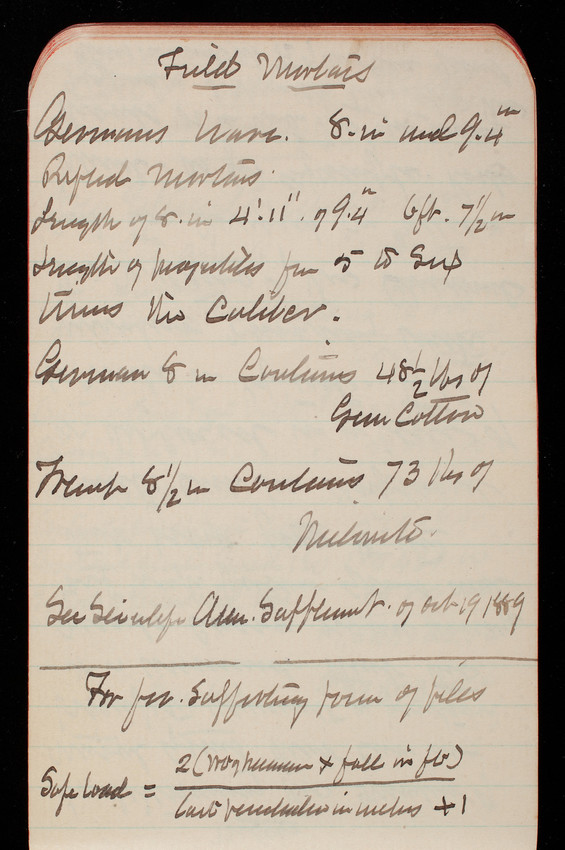 Field Mortars
Germans have. 8.in and 9.4 in
Rifled Mortars.
Length of 8.in 4'.11". of 9.4 in 6ft. 7 1/2 in
Length of projectiles from 5 to Six
times the Caliber.
German 8 in Contains 48 1/2 lbs of
Gun Cotton
French 8 1/2 in Contains 73 lbs of
Melinite.
See Scientific Am. Supplement. of Oct 19 1889
For Supporting power of piles
Safe load = 2(W of hammer x fall in ft)
last penetration in inches + 1